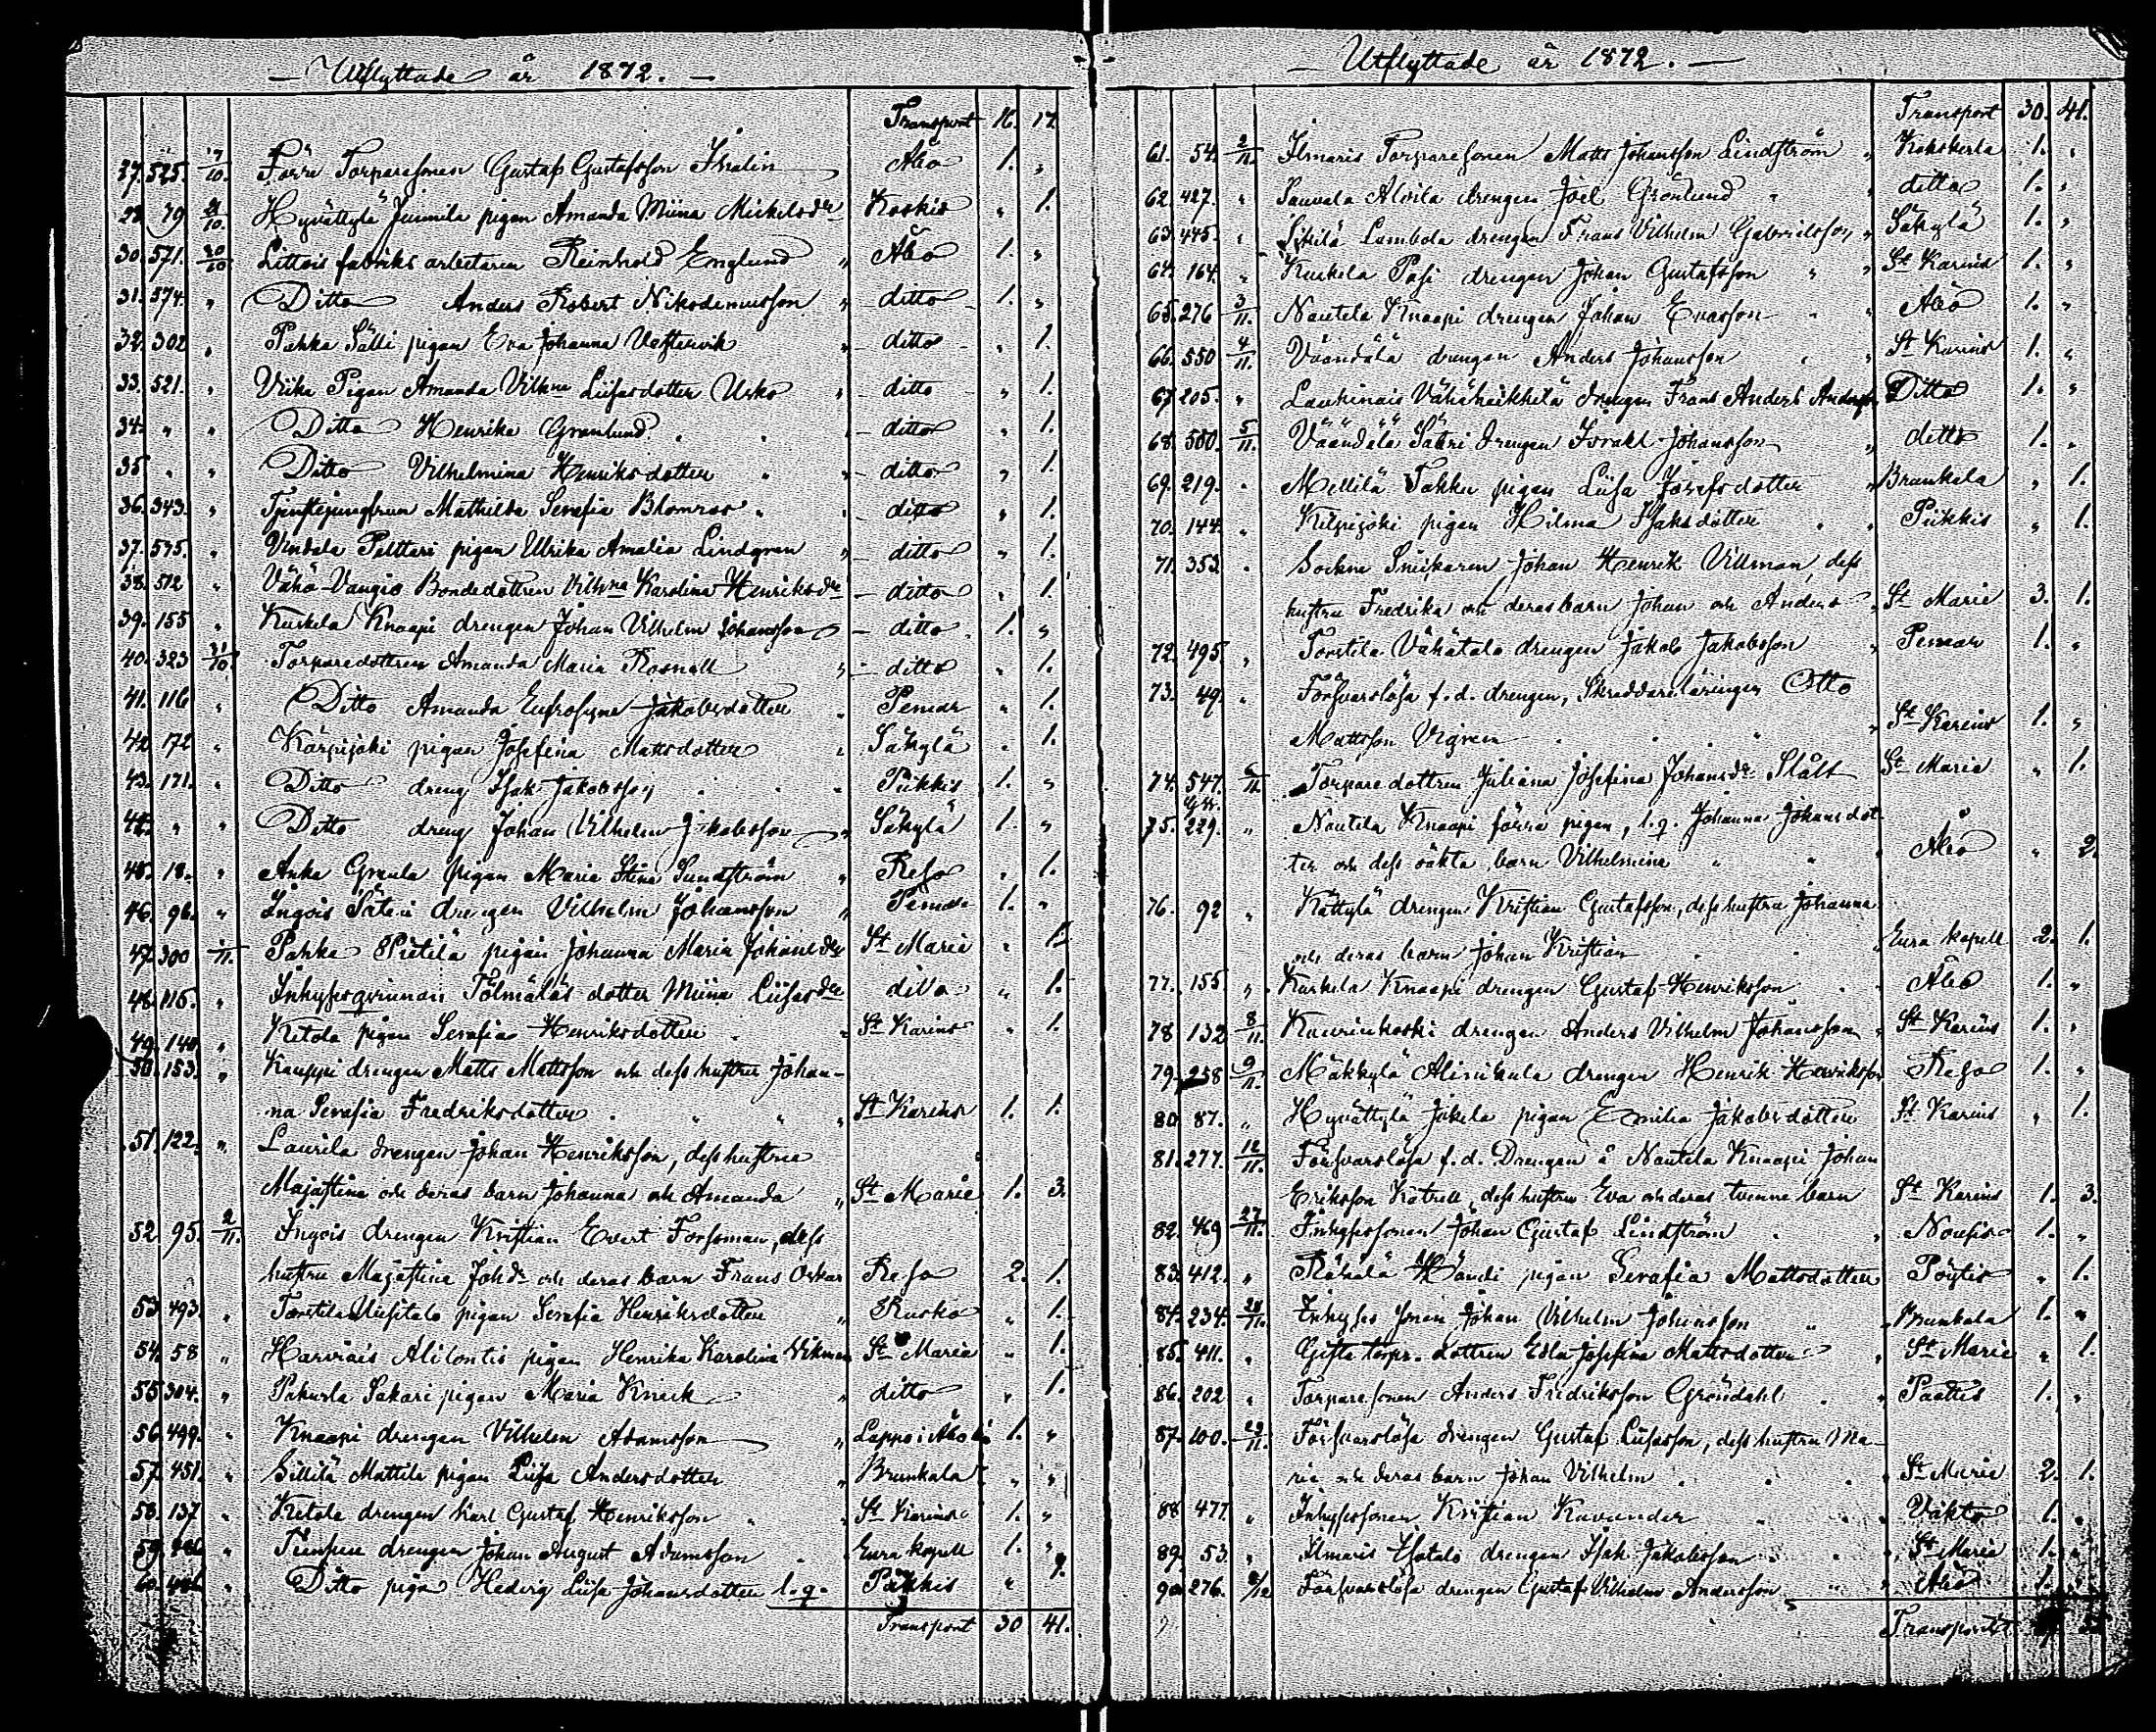 Utflyttade år 1872.
Transport 16. 17.
27. 525. 17/10. Förre Torparesonen Gustaf Gustafsson Åbo 1. "
79 21/10. Hyvättylä Jussila pigan Amanda Miina Mickelsdr Koskis " 1.
30. 571. 30/10. Littois fabriks arbetaren Reinhold Englund " Åbo 1. "
31. 574. " Ditto Anders Robert Nikodemusson " ditto 1. "
32. 302 " Pahka Sälli pigan Eva Johanna Vestervik " ditto " 1.
33. 521. " Pigan Amanda Vilhna Liisasdotter Usko " ditto " 1.
34. " " Ditto Henrika Granlund " ditto " 1.
35 " " Ditto Vilhelmina Henriksdotter " ditto " 1.
36. 343. " Tjenstejungfrun Mathilda Serafia Blomroos " ditto " 1.
37. 575. " Pelttari pigan Ulrika Amalia Lindgren " ditto " 1.
38. 512 " Vähä-Vangio Bondedottren Vilhna Karolina Henriksdr ditto " 1.
39. 155 " Kurkela Knaapi drengen Johan Vilhelm Johansson ditto 1. "
40. 323 31/10. Torparedottren Amanda Maria Rosnell " ditto " 1.
41. 116 " Ditto Amanda Eufrosyne Jakobsdotter " Pemar " 1.
42 172 " Kärpijoki pigan Josefina Mattsdotter " Säkylä " 1.
43. 171. " Ditto dreng Isak Jakobsson " Piikkis 1. "
44. " " Ditto dreng Johan Vilhelm Jakobsson " Säkylä 1. "
45. 18. " Anka pigan Maria Stina Sundström " Reso " 1.
46. 96. " Ingois Säteri drengen Vilhelm Johansson " Pemar 1. "
47. 300 1/11. Pahka Pietilä pigan Johanna Maria Johansdr St Marie " 1.
48. 115. " Inhysesqvinnan Tölmäläs dotter Miina Liisasdr ditto " 1.
49. 140 " Ketola pigan Serafia Henriksdotter " St Karins " 1.
50. 153. " Kauppi drengen Matts Mattsson och dess hustru Johan-
na Serafia Fredriksdotter " St Karins 1. 1.
51. 122. " Laurila drengen Johan Henriksson, dess hustru
Majastina och deras barn Johanna och Amanda " St Marie 1. 3.
52 95. 2/11. Ingois drengen Kristian Evert Forsman, dess
hustru Majastina Johdr och deras barn Frans Oskar Reso 2. 1.
53 493. " Torstila Uusitalo pigan Serafia Henriksdotter " Rusko " 1.
54. 58 " Harvois Alilontis pigan Henrika Karolina Vikman St Maria " 1.
55 304. " Pakurla Sakari pigan Maria Knuck " ditto " 1.
56. 499. " Knaapi drengen Vilhelm Adamsson " Lappo i Åbo 1. "
57. 451. " Sillilä Mattila pigan Liisa Andersdotter " Brunkala " "
58. 137 " Ketola drengen Karl Gustaf Henriksson " St Karins 1. "
59. " drengen Johan August Adamsson " Eura kapell 1. "
60. " Ditto pigan Hedvig Liisa Johansdotter l. q. Piikkis " 1.
Transport 30 41.
Utflyttade år 1872.
Transport 30. 41.
61. 54. 2/11. Ilmaris Torparesonen Matts Johansson Lindström " Kakskerta 1. "
62. 427. " Sauvala Alvila drengen Joel Grönlund " ditto 1. "
63. 445. " Liekilä Lambola drengen Frans Vilhelm Gabrielsson " Säkylä 1. "
64. 164. " Kurkela Pasi drengen Johan Gustafsson " St Karins 1. "
65. 276 3/11. Nautela Knaapi drengen Johan Enasson " Åbo 1. "
66. 550 4/11. Väändälä drengen Anders Johansson " St Karins 1. "
67 205. " Laukinais Vähäheikkilä drengen Frans Anders Ditto 1. "
68. 500. 5/11. Väändälä Säteri drengen Israel Johansson " ditto 1. "
69. 219. " Mellilä Takku pigan Liisa Josefsdotter " Brunkala " 1.
70. 144. " Kärpijoki pigan Hilma Isaksdotter " Piikkis " 1.
71. 352. " Sockne Snickaren Johan Henrik Villman, dess
hustru Fredrika och deras barn Johan och Anders " St Marie 3. 1.
72. 495. " Torstila Vähätalo drengen Jakob Jakobsson " Pemar 1. "
73. 49. " Försvarslösa f. d. drengen, Skreddarelärlingen Otto
Mattsson Vigren " St Karins 1. "
74. 547. 6/11. Torparedottren Juliana Josefina Johansdr Stålt St Maria " 1.
75. 229. " Nautela Knaapi förra pigan, l. q. Johanna Johansdot-
ter och dess oäkta barn Vilhelmina " Åbo " 2.
76. 92 " Kättylä drengen Kristian Gustafsson, dess hustru Johanna
och deras barn Johan Kristian " Eura kapell 2. 1.
77. 155. " Kurkela Knaapi drengen Gustaf Henriksson " Åbo 1. "
78 132 8/11. Kaurinkoski drengen Anders Vilhelm Johansson " St Karins 1. "
79. 258 9/11. Mäkkylä Alinikula drengen Henrik Henriksson Reso 1. "
80. 87. " Hyvättylä Jäkelä pigan Emilia Jakobsdotter St Karins " 1.
81. 277. 12/11. Försvarslösa f. d. Drengen å Nautela Knaapi Johan
Eriksson Kätrell, dess hustru Eva och deras tvenne barn St Karins 1. 3.
82. 469 27/11. Inhysessonen Johan Gustaf Lindström " Nousis 1. "
83. 412. " Rähälä Händi pigan Serafia Mattsdotter Pöytis " 1.
84. 234. 28/11. Inhyses sonen Johan Vilhelm Johansson " Brunkala 1. "
85. 411. " Gifta torpr. dottren Edla Josefina Mattsdotter " St Marie " 1.
86. 202 " Torparesonen Anders Fredriksson Gröndahl " Paattis 1. "
87. 100. 29/11. Försvarslösa drengen Gustaf Liisasson, dess hustru Ma-
ria och deras barn Johan Vilhelm " St Marie 2. 1.
88 477. " Inhysessonen Kristian Kavander " Vähto 1. "
89. 53. " Ilmaris Isotalo drengen Isak Jakobsson " St Maria 1. "
90. 276. Försvarslösa drengen Gustaf Vilhelm Andersson " Åbo 1. "
Transport